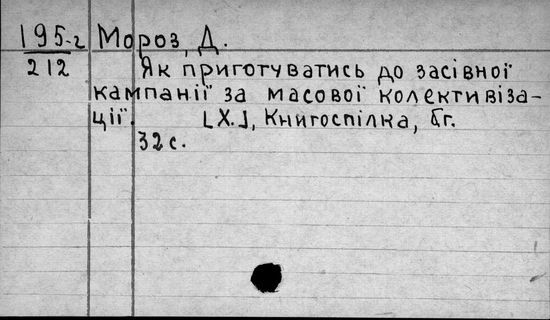 195-г Мороз, Д.
212 Як приготуватись до засівної
кампанії за масової колективіза-
ції. [Х.], Книгоспілка, б.г.
32 с.